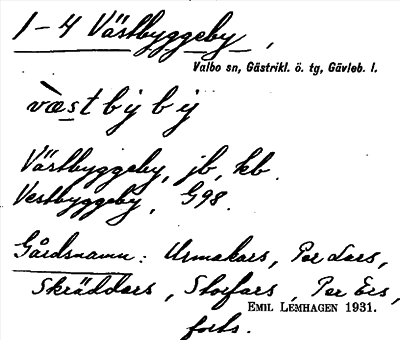 1–4 Västbyggeby,
Valbo sn, Gästrikl. ö. tg, Gävleb. l.
væ̀stbyby
Västbyggeby, jb, kb.
Vestbyggeby, G98.
Gårdsnamn: Urmakars, Per Lars,
Skräddars, Storfars, Per Ers,
EMIL LEMHAGEN 1931.
forts.